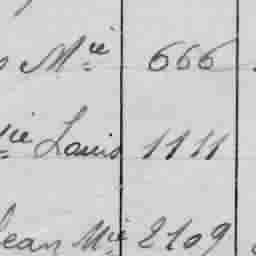 Mie 666
ie Louis 1111
Jean Mie 2109